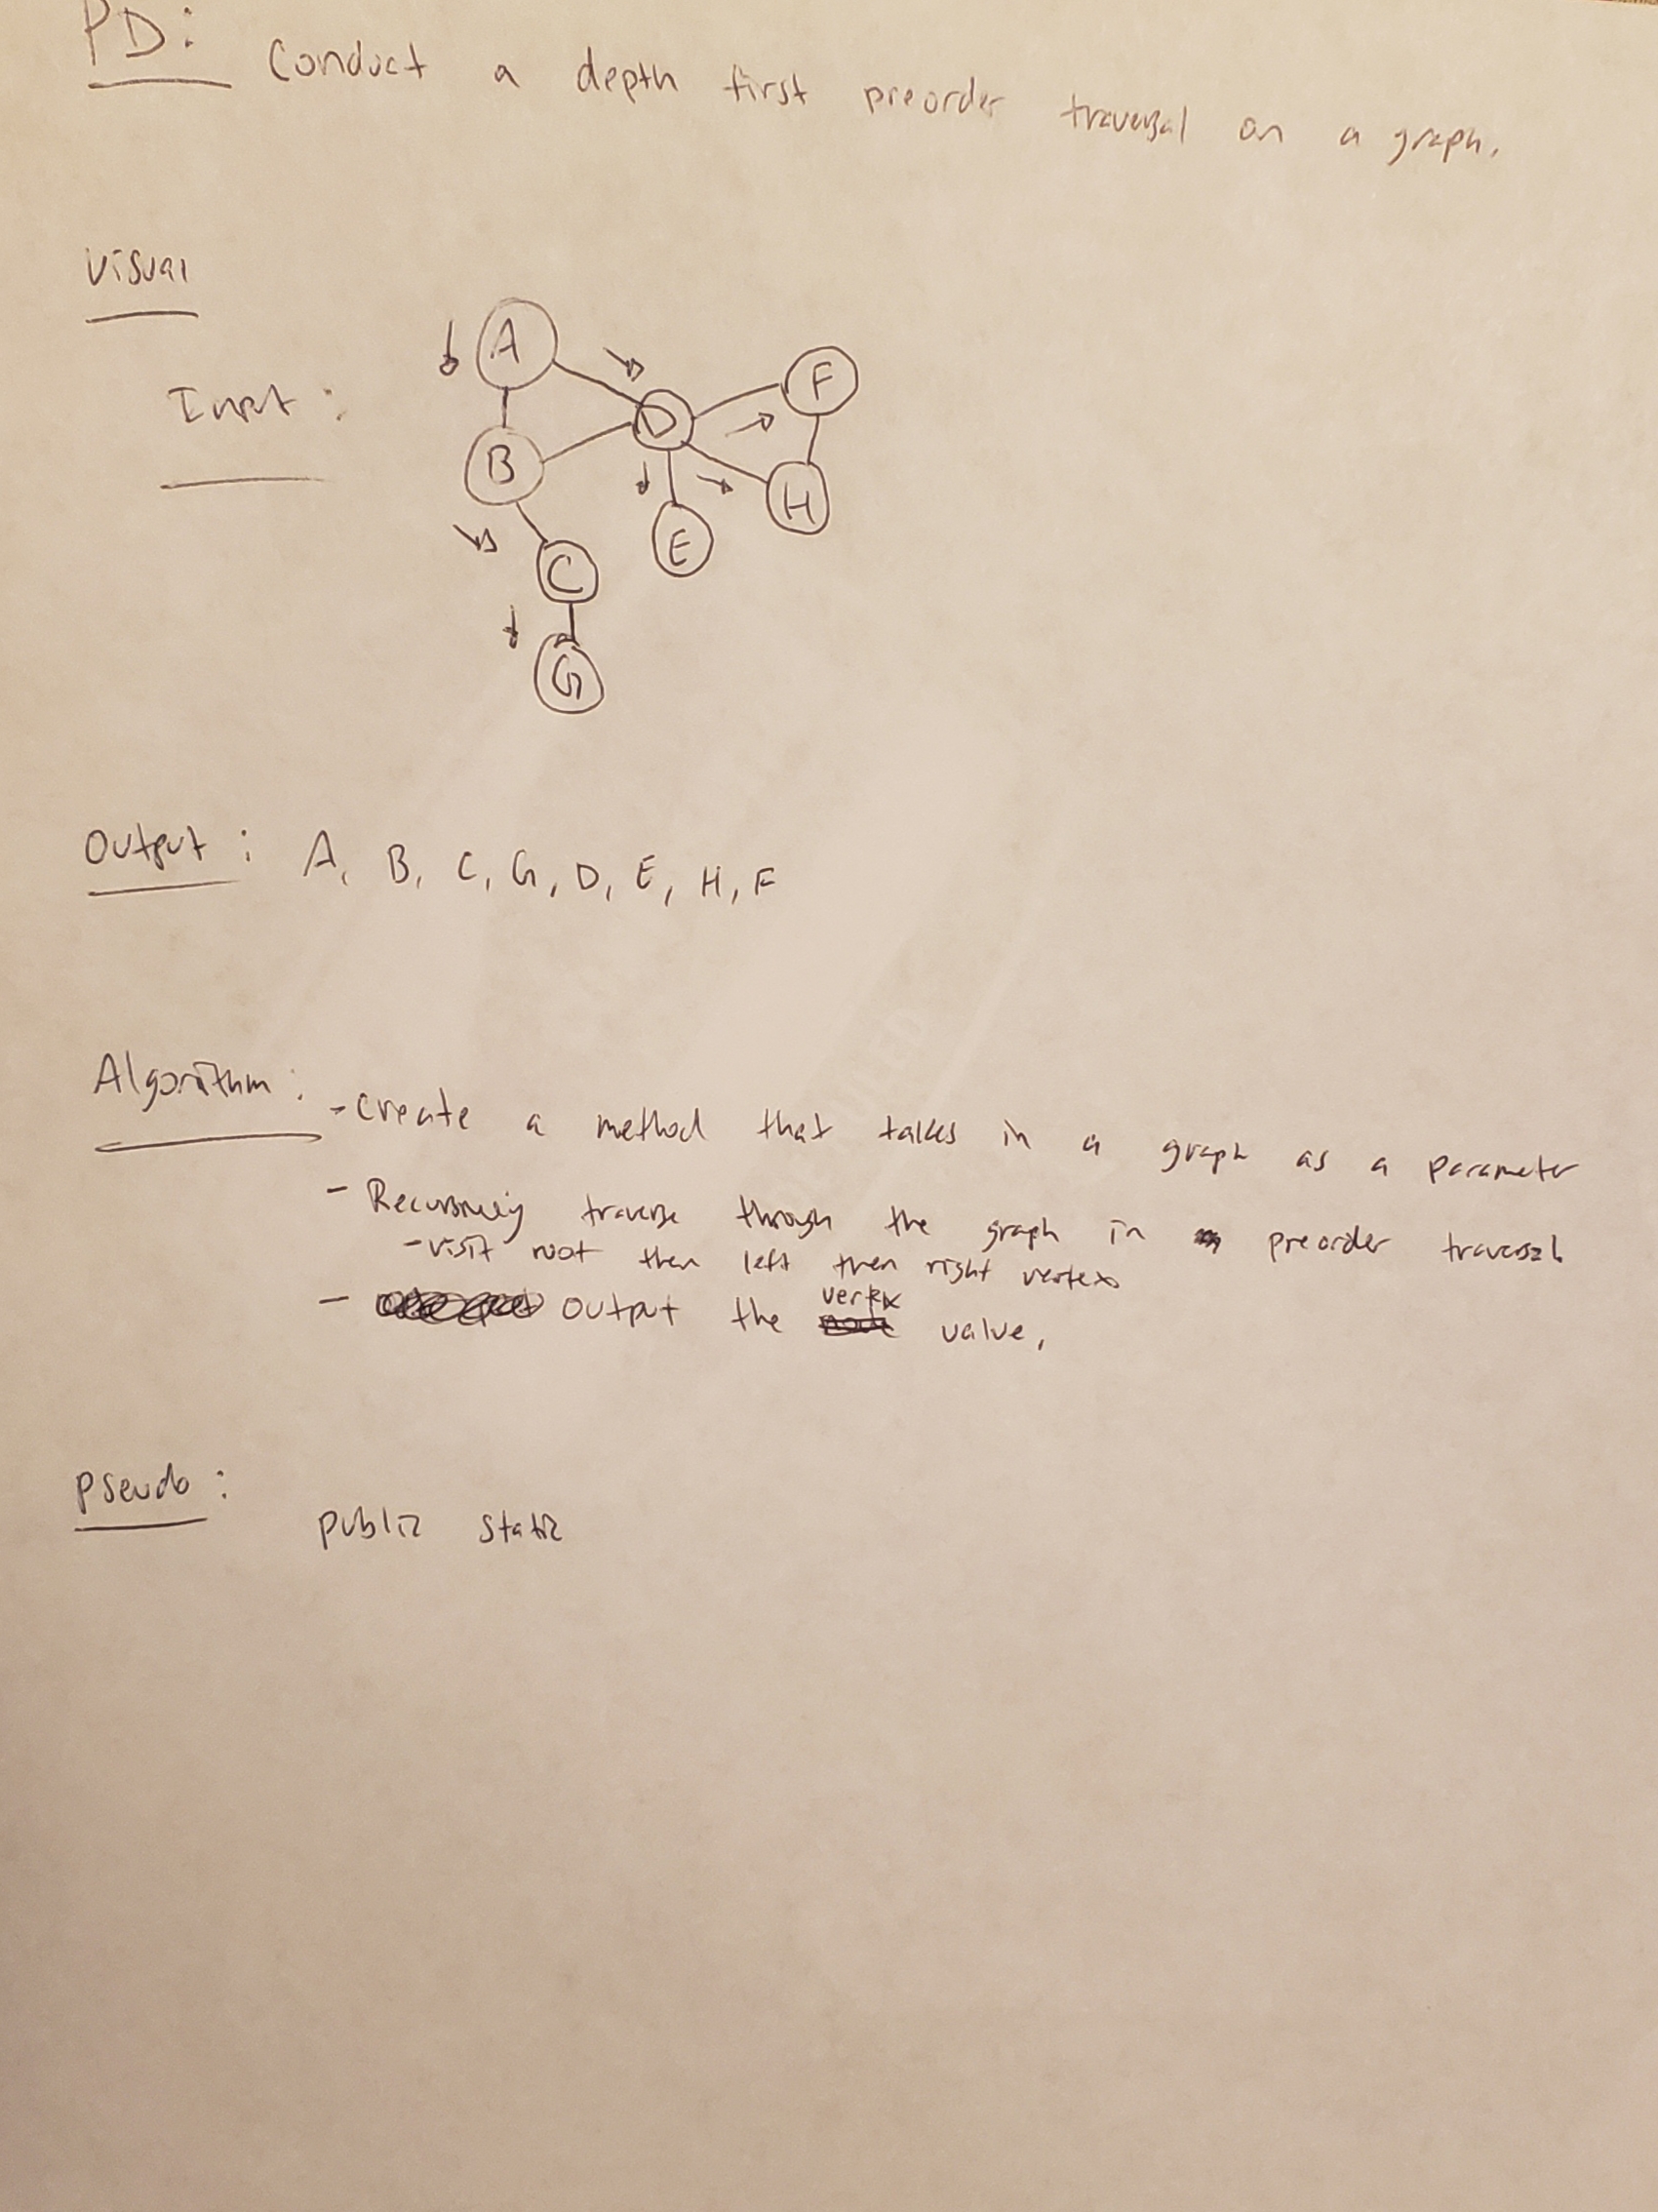 PD: Conduct a depth first preorder traversal on a graph.
Visual
Input :
A
F
D
B
H
E
C
G
Output : A, B, C, G, D, E, H, F
Algorithm : - Create a method that takes in a graph as a parameter
- Recursively traverse through the graph in preorder traversal
- visit root then left then right vertex
- output the vertex value.
Pseudo :
public static